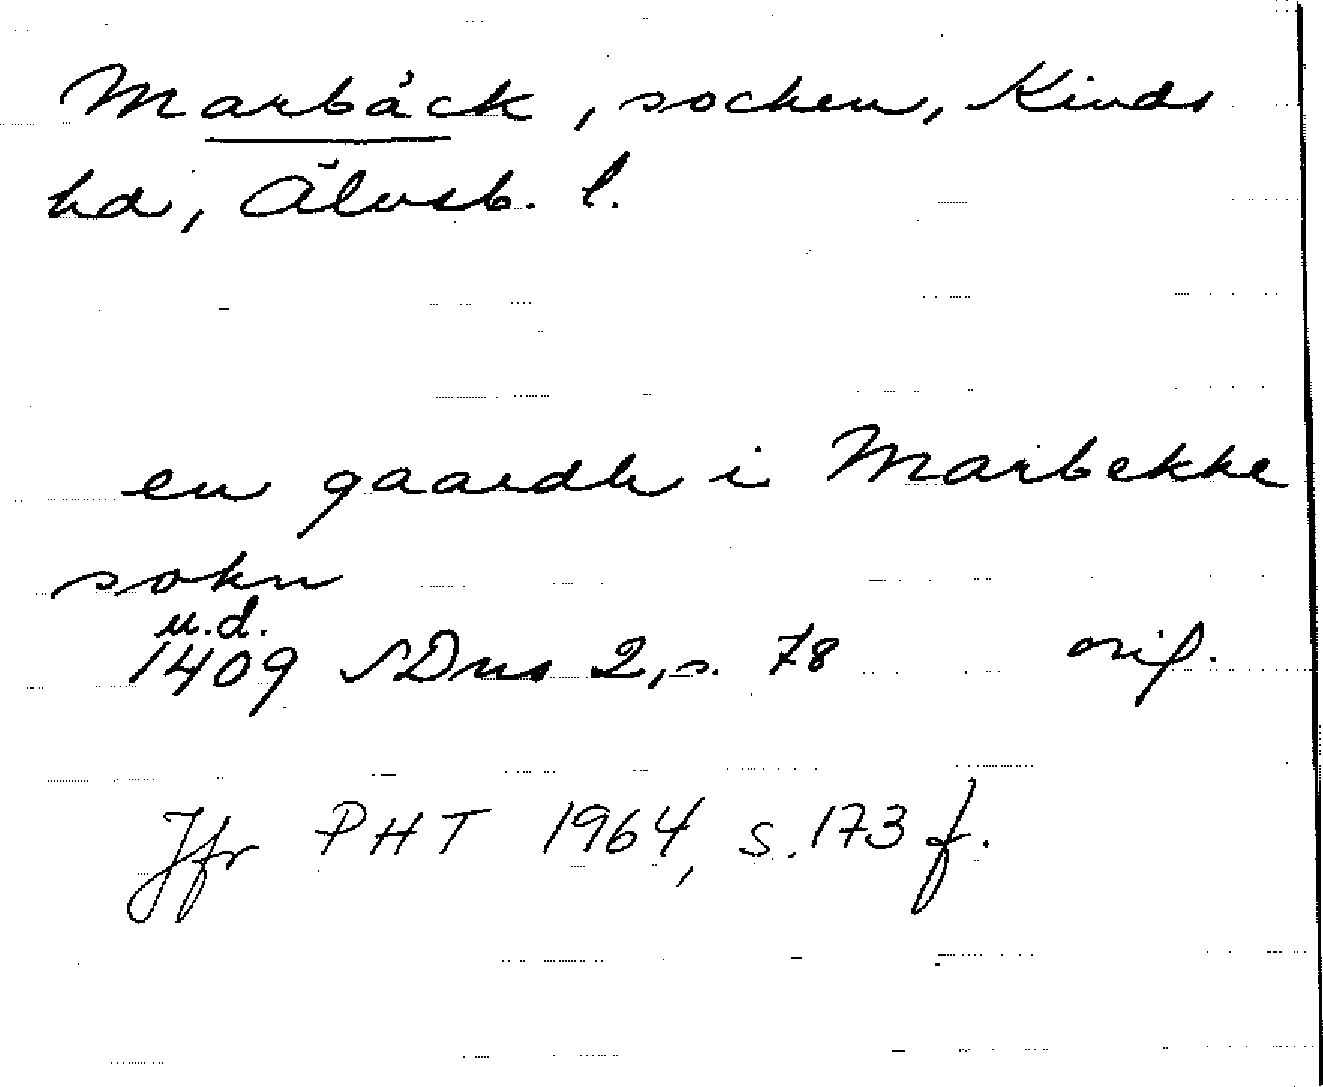 Marbäck, socken, Kinds
hd, Älvsb. l.
en gaardh i Marbekke
sokn
u.d.
1409 SDns 2, s. 78 orig.
Jfr PHT 1964, s. 173 f.